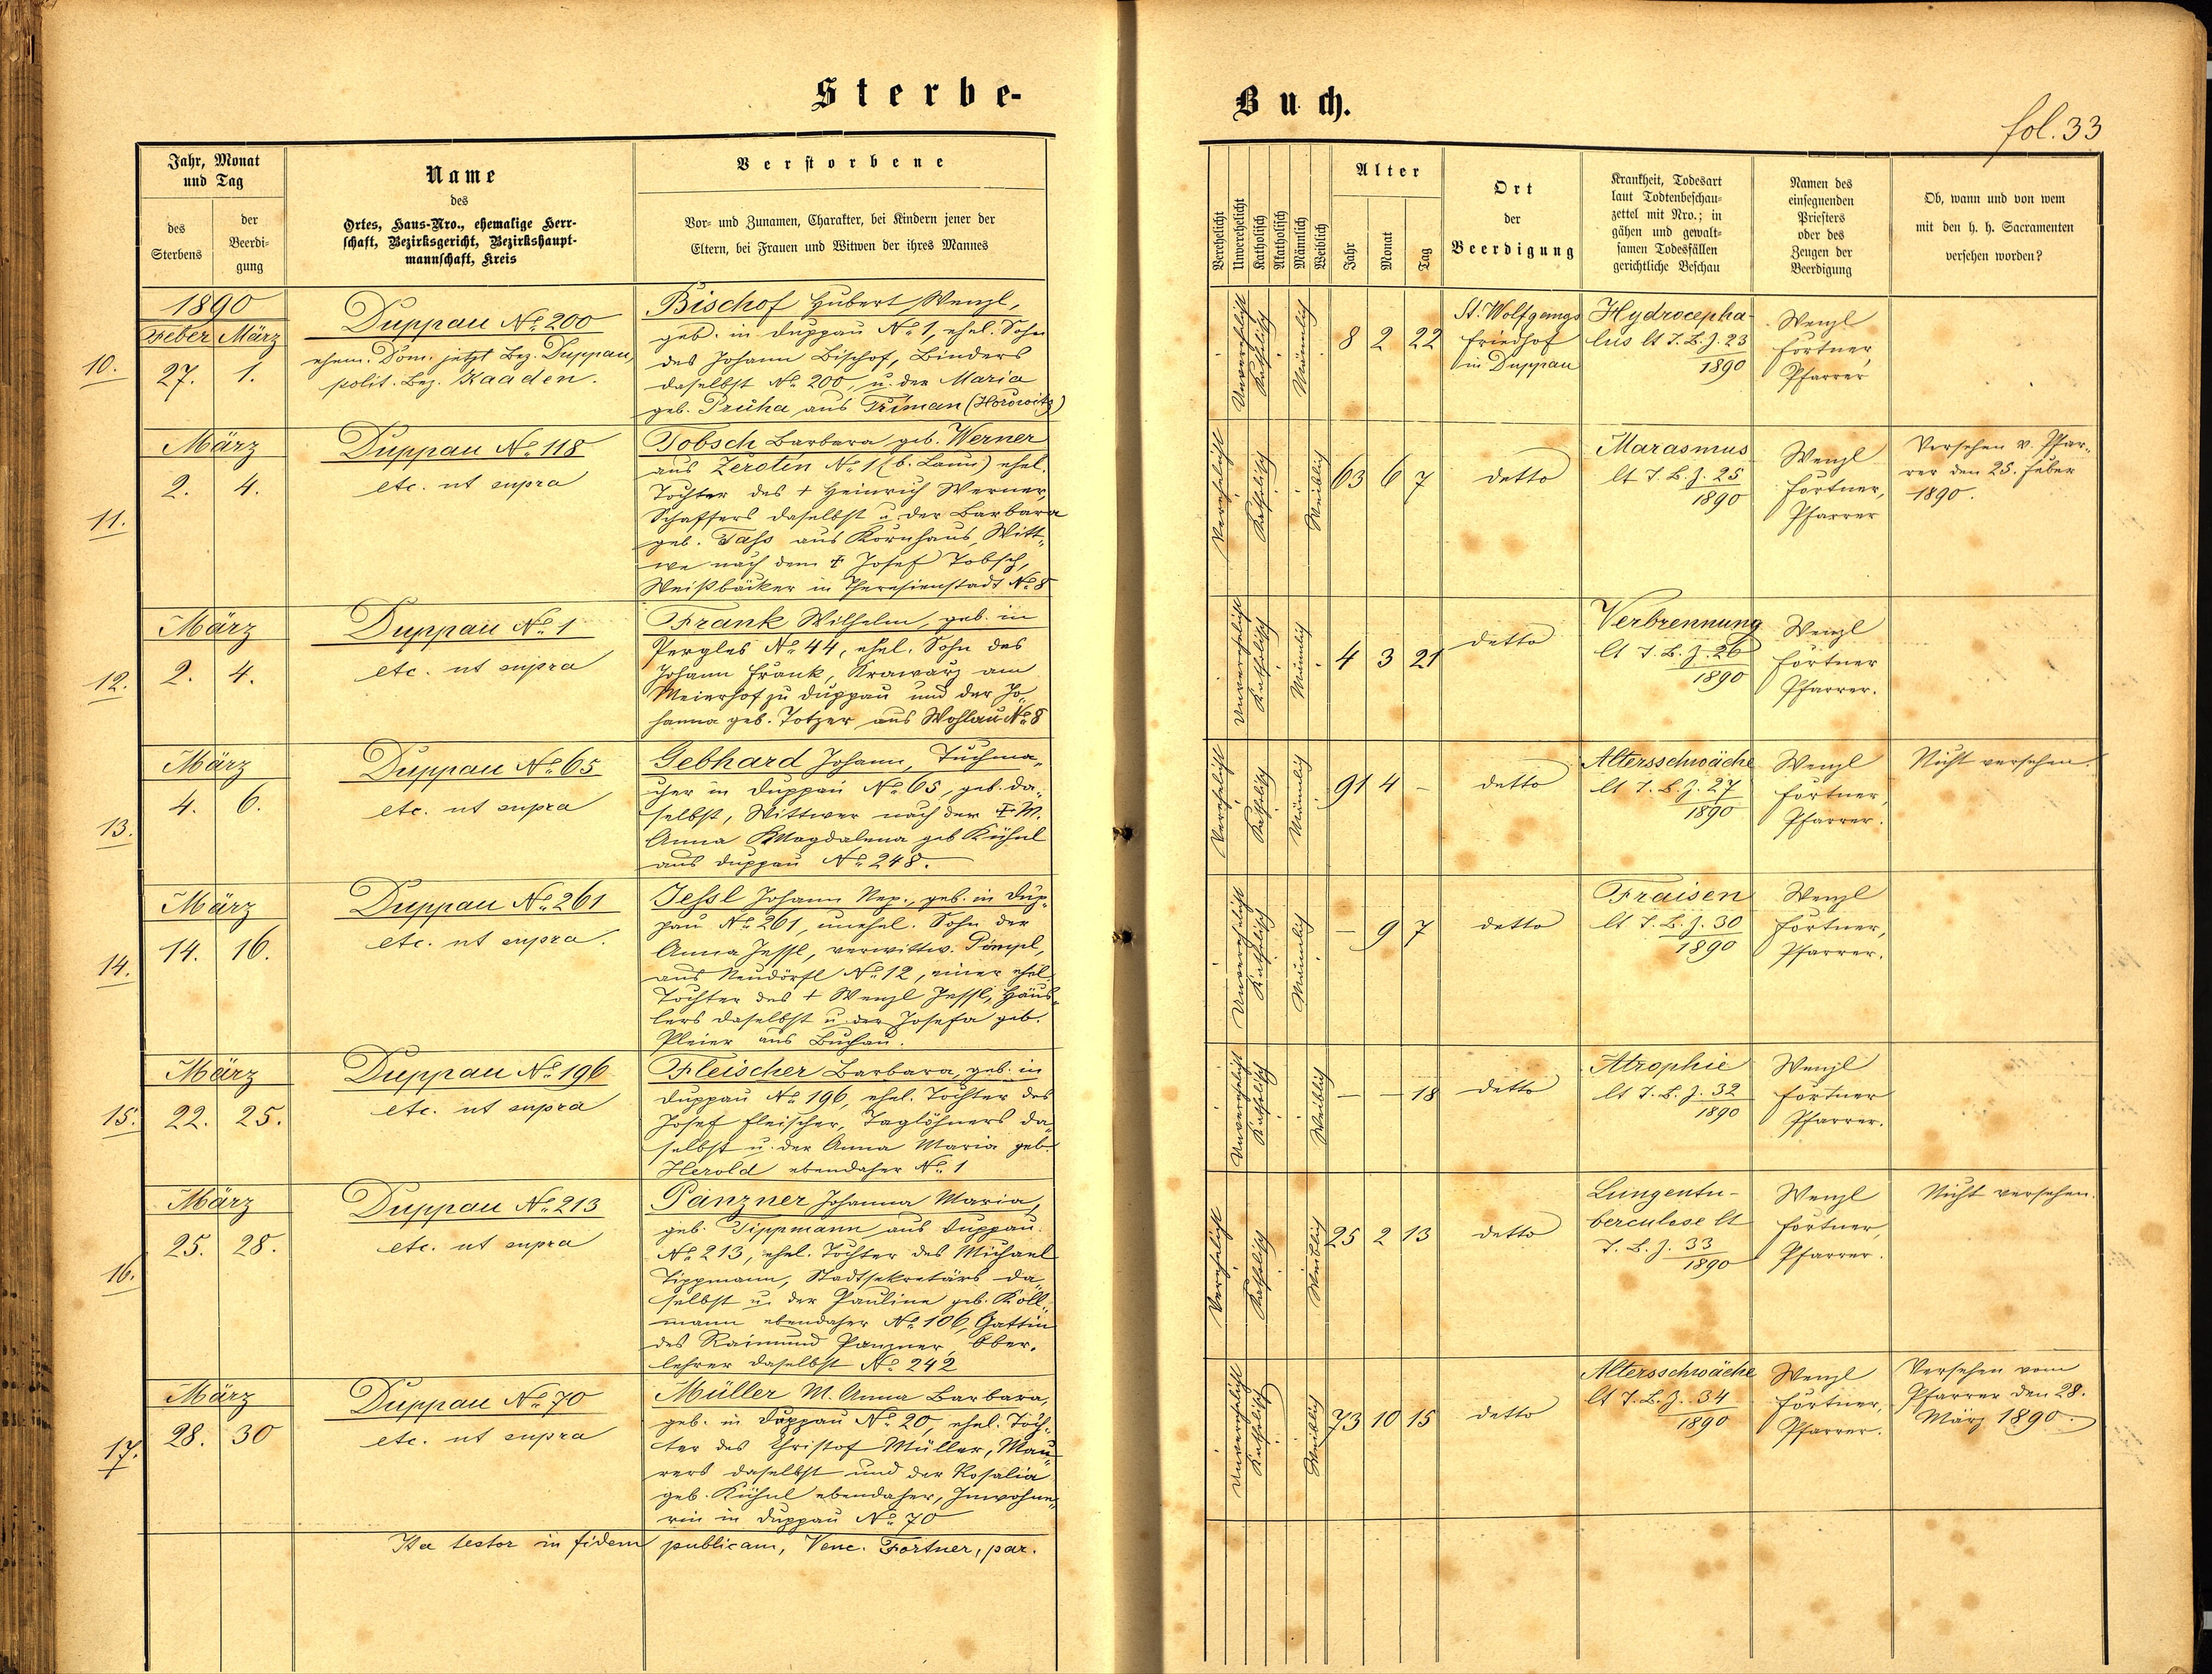 Sterbe-
Buch.
fol. 33
Jahr, Monat
und Tag
des
Sterbens
der
Beerdi-
gung
Name
des
Ortes, Haus-Nro., ehemalige Herr-
schaft, Bezirksgericht, Bezirkshaupt-
mannschaft, Kreis
Verstorbene
Vor- und Zunamen, Charakter, bei Kindern jener der
Eltern, bei Frauen und Witwen der ihres Mannes
Verehelicht
Unverehelicht
Katholisch
Akatholisch
Männlich
Weiblich
Alter
Jahr
Monat
Tag
Ort
der
Beerdigung
Krankheit, Todesart
laut Todtenbeschau-
zettel mit Nro.; in
gähen und gewalt-
samen Todesfällen
gerichtliche Beschau
Namen des
einsegnenden
Priesters
oder des
Zeugen der
Beerdigung
Ob, wann und von wem
mit den h. h. Sacramenten
versehen worden?
10.
1890
Feber März
27. 1.
Duppau No 200
ehem. Dom. jetzt Bez. Duppau,
polit. Bez. Kaaden.
Bischof Hubert Wenzl,
geb. in Duppau No 1, ehel. Sohn
des Johann Bischof, Binders
daselbst No 200, u. der Maria
geb. Prúha aus Tríman (Horowitz)
Unverehelicht
Katholisch
Männlich
8 2 22
St. Wolfgangs
friedhof
in Duppau
Hydrocepha-
lus lt T. B. Z. 23
1890
Wenzl
Fortner,
Pfarrer
11.
März
2. 4.
Duppau No 118
etc. ut supra
Tobsch Barbara geb. Werner
aus Zerotin No 1 (b. Laun) ehel.
Tochter des + Heinrich Werner,
Schaffers daselbst u. der Barbara
geb. Tass aus Kornhaus, Witt-
we nach dem + Josef Tobsch,
Weißbäcker in Theresienstadt No 8
Verehelicht
Katholisch
Weiblich
63 6 7
detto
Marasmus
lt T. B. Z. 25
1890
Wenzl
Fortner,
Pfarrer
Versehen v. Pfar-
rer den 25. Feber
1890.
12.
März
2. 4.
Duppau No 1
etc. ut supra
Frank Wilhelm, geb. in
Pergles No 44, ehel. Sohn des
Johann Frank, Krawarz am
Meierhof zu Duppau und der Jo-
hanna geb. Totzer aus Wohlau No 8
Unverehelicht
Katholisch
Männlich
4 3 21
detto
Verbrennung
lt T. B. Z. 26
1890
Wenzl
Fortner
Pfarrer.
13.
März
4. 6.
Duppau No 65
etc. ut supra
Gebhard Johann, Tuchma-
cher in Duppau No 65, geb. da-
selbst, Wittwer nach der + M.
Anna Magdalena geb Kühnl
aus Duppau No 248.
Verehelicht
Katholisch
Männlich
91 4 -
detto
Altersschwäche
lt T. B. Z. 27
1890
Wenzl
Fortner,
Pfarrer.
Nicht versehen.
14.
März
14. 16.
Duppau No 261
etc. ut supra.
Jessl Johann Nep., geb. in Dup-
pau No 261, unehel. Sohn der
Anna Jessl, verwittw. Pömpl,
aus Neudörfl No 12, einer ehel.
Tochter des + Wenzl Jessl, Häus-
lers daselbst u. der Josefa geb.
Pleier aus Buchau.
Unverehelicht
Katholisch
Männlich
- 9 7
detto
Fraisen
lt T. B. Z. 30
1890
Wenzl
Fortner,
Pfarrer.
15.
März
22. 25.
Duppau No 196
etc. ut supra
Fleischer Barbara, geb. in
Duppau No 196, ehel. Tochter des
Josef Fleischer, Taglöhners da-
selbst u. der Anna Maria geb.
Herold ebendaher No 1
Unverehelicht
Katholisch
Weiblich
- - 18
detto
Atrophie
lt T. B. Z. 32
1890
Wenzl
Fortner
Pfarrer.
16.
März
25. 28.
Duppau No 213
etc. ut supra
Panzner Johanna Maria,
geb. Tippmann aus Duppau
No 213, ehel. Tochter des Michael
Tippmann, Stadtsekretärs da-
selbst u. der Pauline geb. Köll-
mann ebendaher No 106, Gattin
des Raimund Panzner, Ober-
lehrer daselbst No 242
Verehelicht
Katholisch
Weiblich
25 2 13
detto
Lungentu-
berculose lt
T. B. Z. 33
1890
Wenzl
Fortner,
Pfarrer.
Nicht versehen.
17.
März
28. 30
Duppau No 70
etc. ut supra
Müller M. Anna Barbara,
geb. in Duppau No 20, ehel. Toch-
ter des Christof Müller, Mau-
rers daselbst und der Rosalia
geb. Kühnl ebendaher, Inwohne-
rin in Duppau No 70
Unverehelicht
Katholisch
Weiblich
73 10 15
detto
Altersschwäche
lt T. B. Z. 34
1890
Wenzl
Fortner,
Pfarrer.
Versehen vom
Pfarrer den 28.
März 1890.
Ita testor in fidem publicam, Venc. Fortner, par.